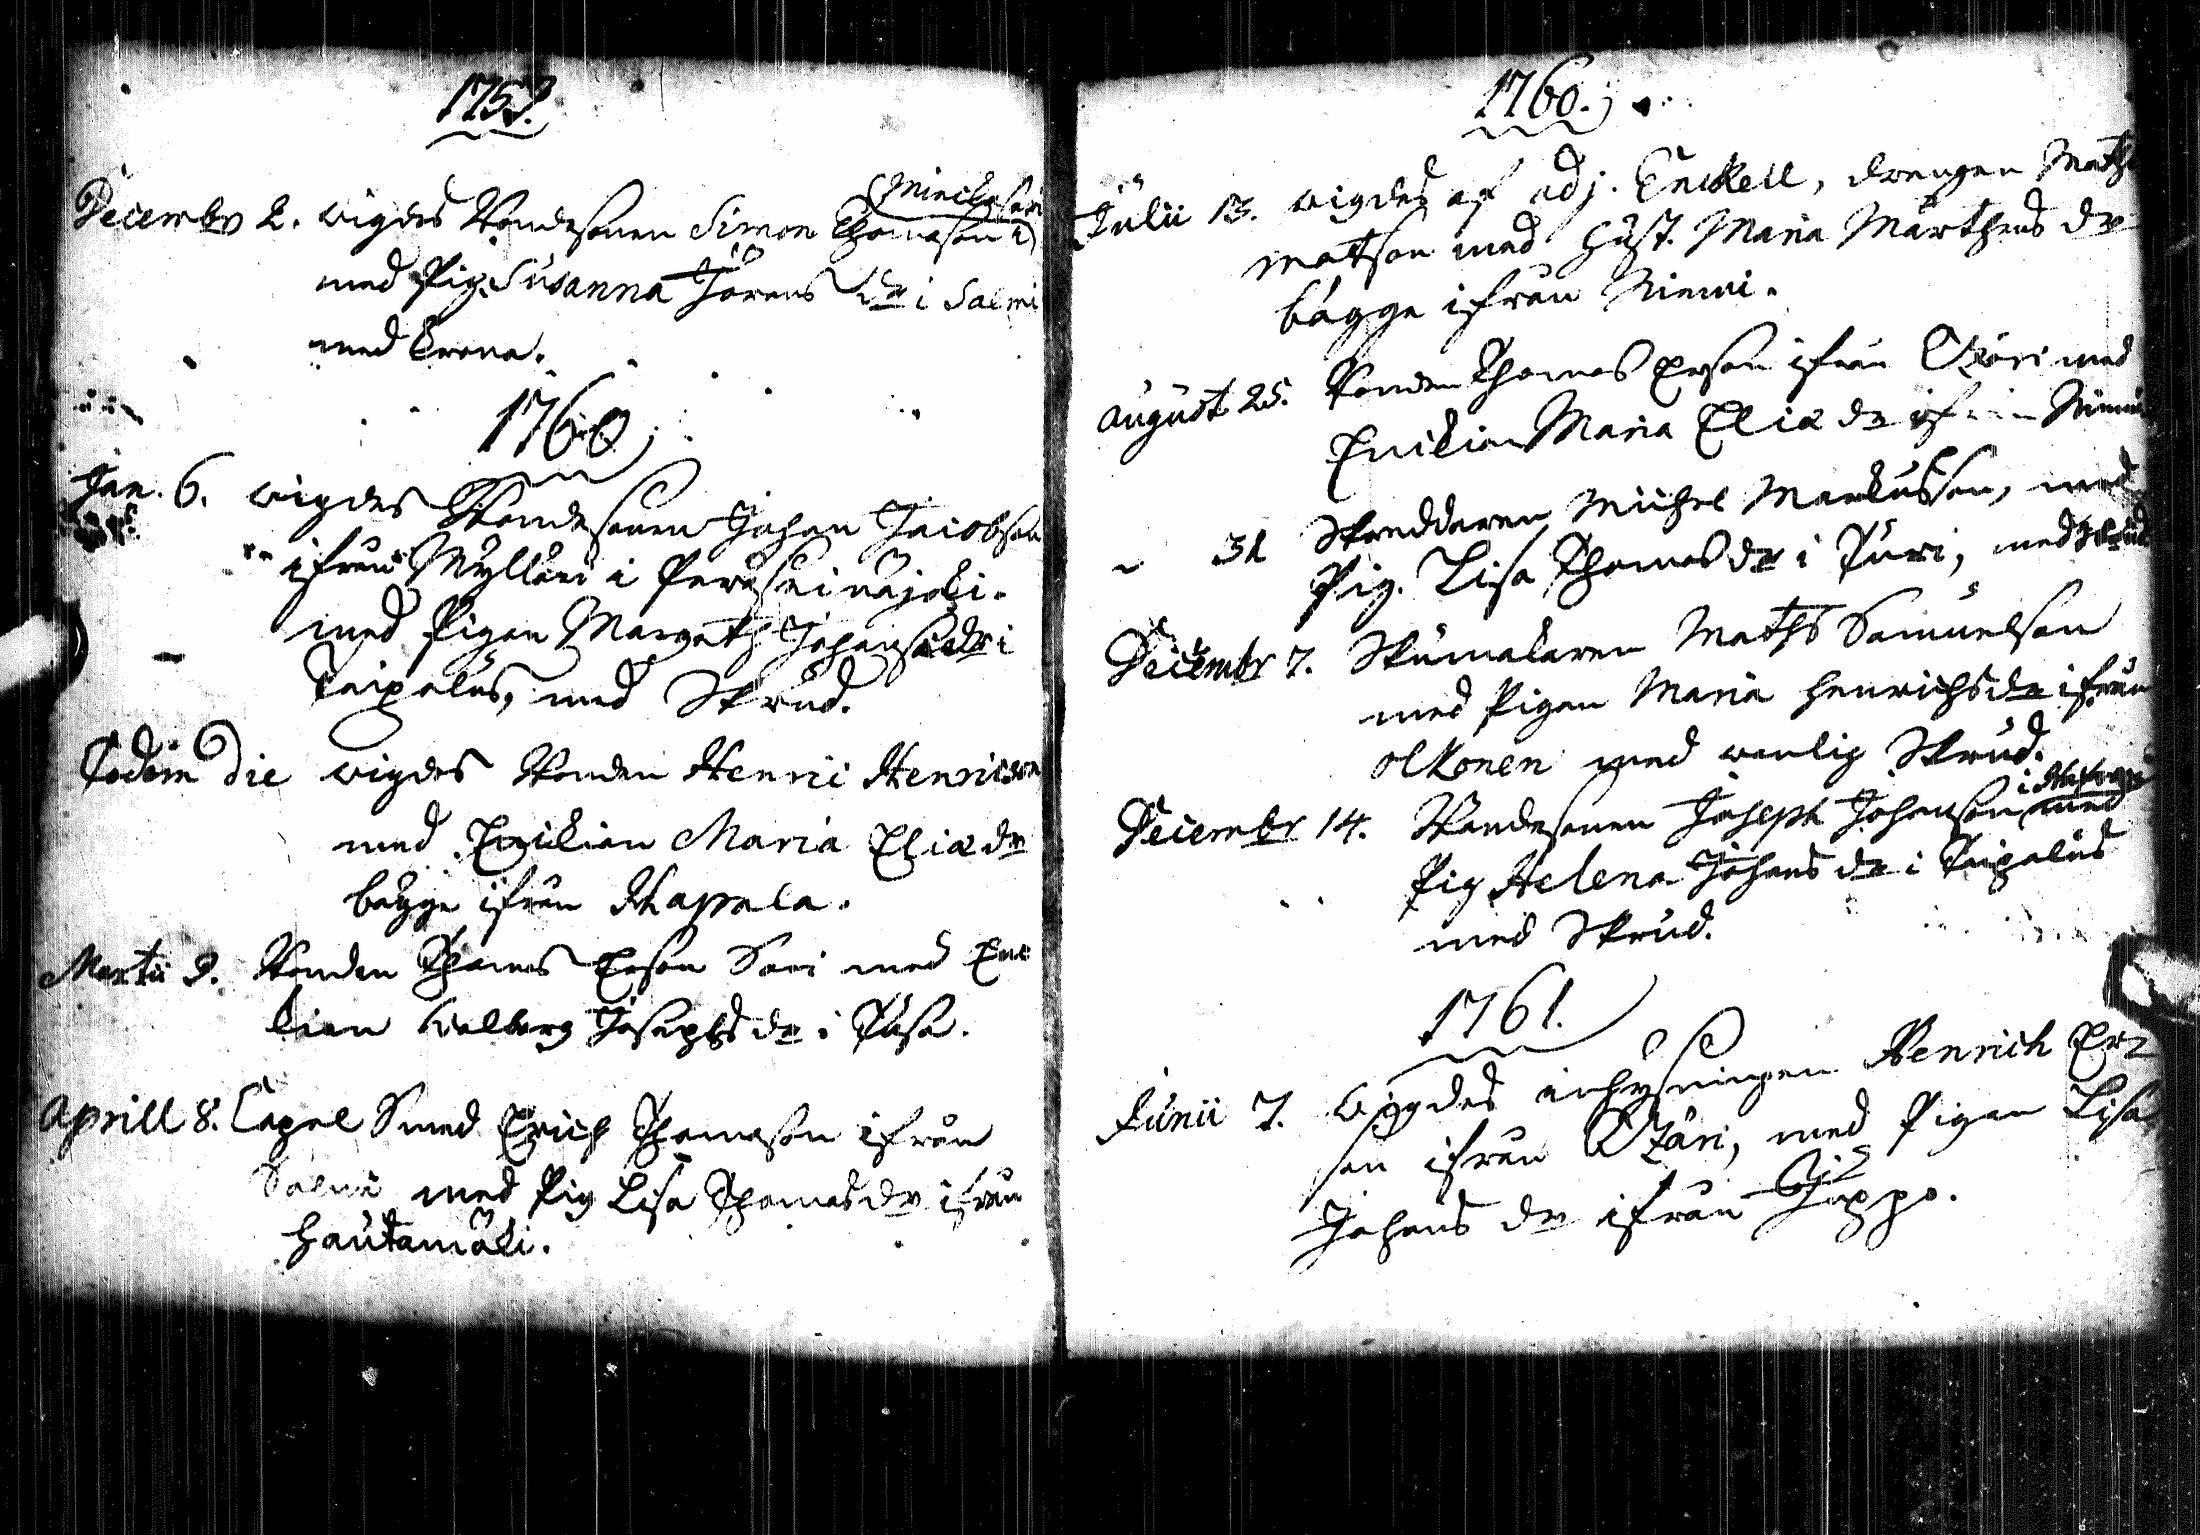 1759.
Decembr 2. wigdes Bondesonen Simon Thomason i
med Pig. Susanna Jörans dr i Salmi
med Crona.
1760.
Jan. 6. wigdes Bondesonen Johan Jacobson
ifrån Mylläri i Peräseinäjoki.
med Pigan Margeth Johansdr i
Taipalus, med Skrud.
Eodem die wigdes Bonden Henric Henricson
med Enckian Maria Eliædr
begge ifrån Rhapala.
Martii 9. Bonden Thomas Erson Sari med Enc
kian Walborg Josephs dr i Pusa.
Aprill 8. Capel Smed Erich Thomason ifrån
Salmi med Pig Lisa Thomasdr ifrån
Hautamäki.
1760.
Julii 13. wigdes af adj. Enckell, drengen Maths
Matson med Hust. Maria Märthens dr
bägge ifrån Niemi.
August 25. Bonden Thomas Erson ifrån med
Enckian Maria Eliæ dr ifrån
" 31 Skreddaren Michel Markusson, med
Pig. Lisa Thomasdr i Turi, med Skrud
Decembr 7. Maths Samuelson
med Pigan Maria Henrichsdr ifrån
Olkonen med wanlig Skrud.
Decembr 14. Bondesonen Joseph Johanson med
Pig Helena Johans dr i Taipalus
med Skrud.
1761.
Junii 7. Wigdes inhysningen Henrich Er=
son ifrån med Pigan Lisa
Johans dr ifrån Juppo.